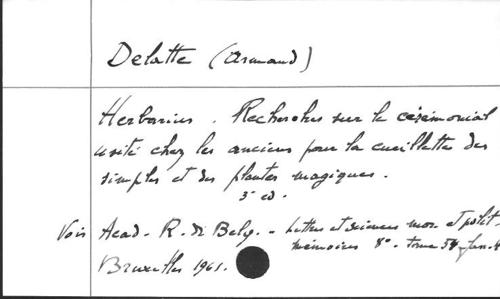 Delatte (Armand)
Herbarius. Recherches sur le cérémonial
usité chez les anciens pour la cueillette des
simples et des plantes magiques.
3e ed.
Voir Acad. R. de Belg. - Lettres et sciences mor. et polit.
mémoires 8°. tome 54 fasc. 4
Bruxelles 1961.